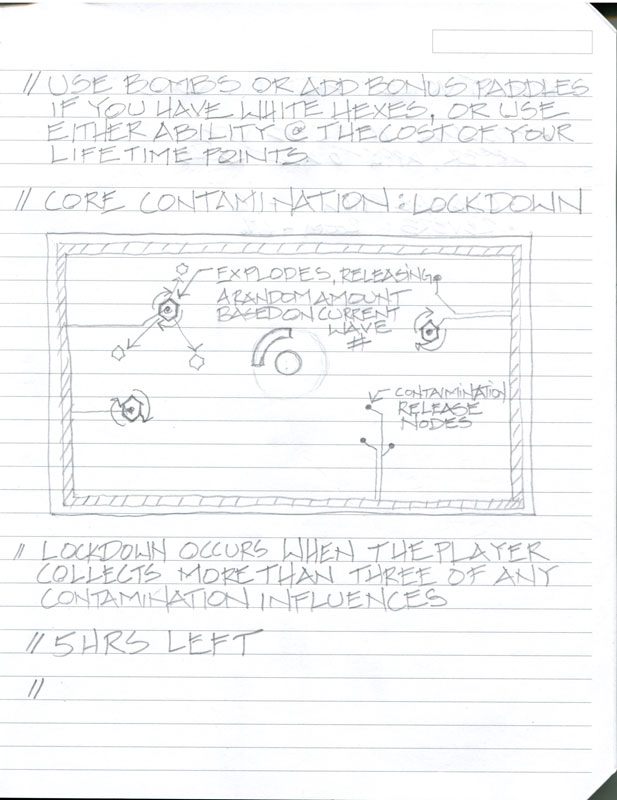 // USE BOMBS OR ADD BONUS PADDLES
IF YOU HAVE WHITE HEXES, OR USE
EITHER ABILITY @ THE COST OF YOUR
LIFETIME POINTS
// CORE CONTAMINATION: LOCKDOWN
EXPLODES, RELEASING
A RANDOM AMOUNT
BASED ON CURRENT
WAVE
#
CONTAIMINATION
RELEASE
NODES
// LOCKDOWN OCCURS WHEN THE PLAYER
COLLECTS MORE THAN THREE OF ANY
CONTAMINATION INFLUENCES
// 5 HRS LEFT
//